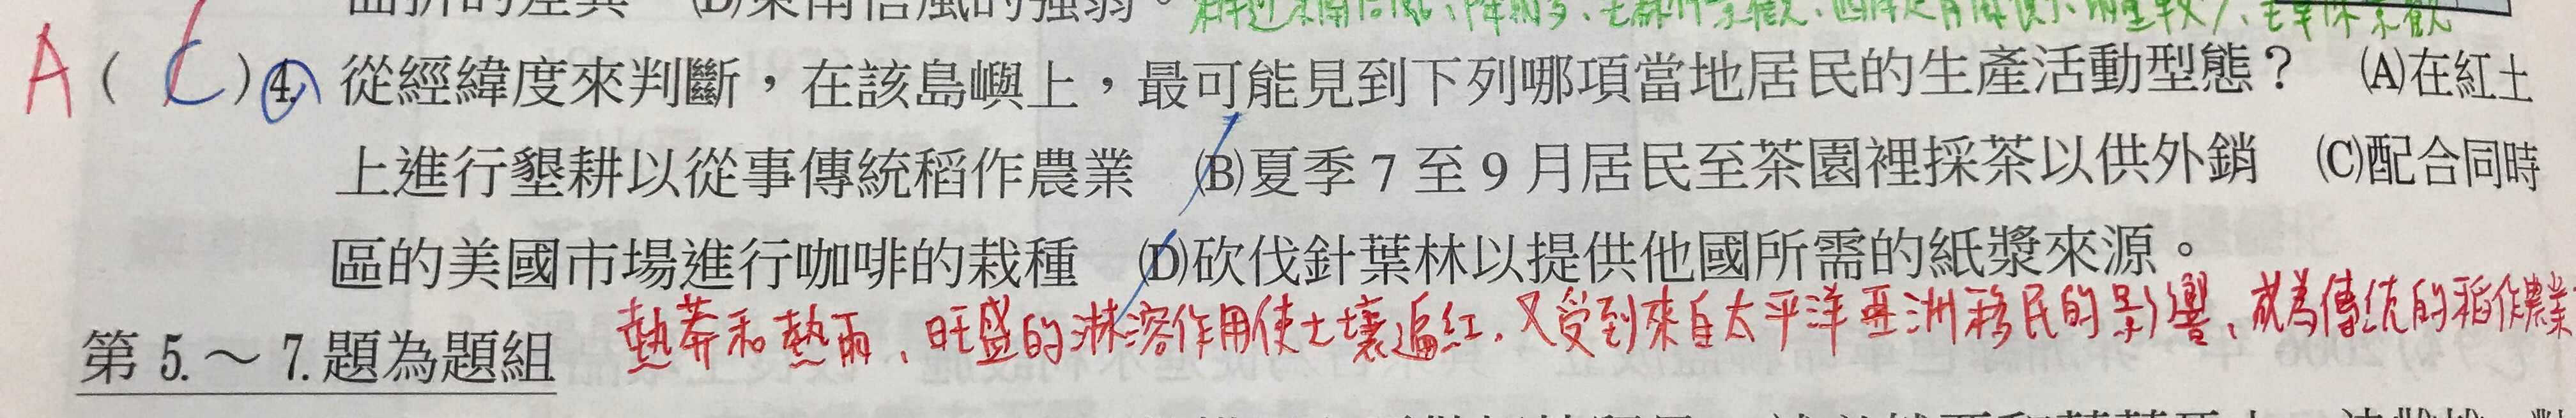 曲折的差異 (D)東南信風的強弱。
A ( C )4. 從經緯度來判斷，在該島嶼上，最可能見到下列哪項當地居民的生產活動型態？ (A)在紅土
上進行墾耕以從事傳統稻作農業 (B)夏季 7 至 9 月居民至茶園裡採茶以供外銷 (C)配合同時
區的美國市場進行咖啡的栽種 (D)砍伐針葉林以提供他國所需的紙漿來源。
熱莽和熱雨、旺盛的淋溶作用使土壤遍紅，又受到來自太平洋亞洲移民的影響、成為傳統的稻作農業
第 5.～ 7.題為題組